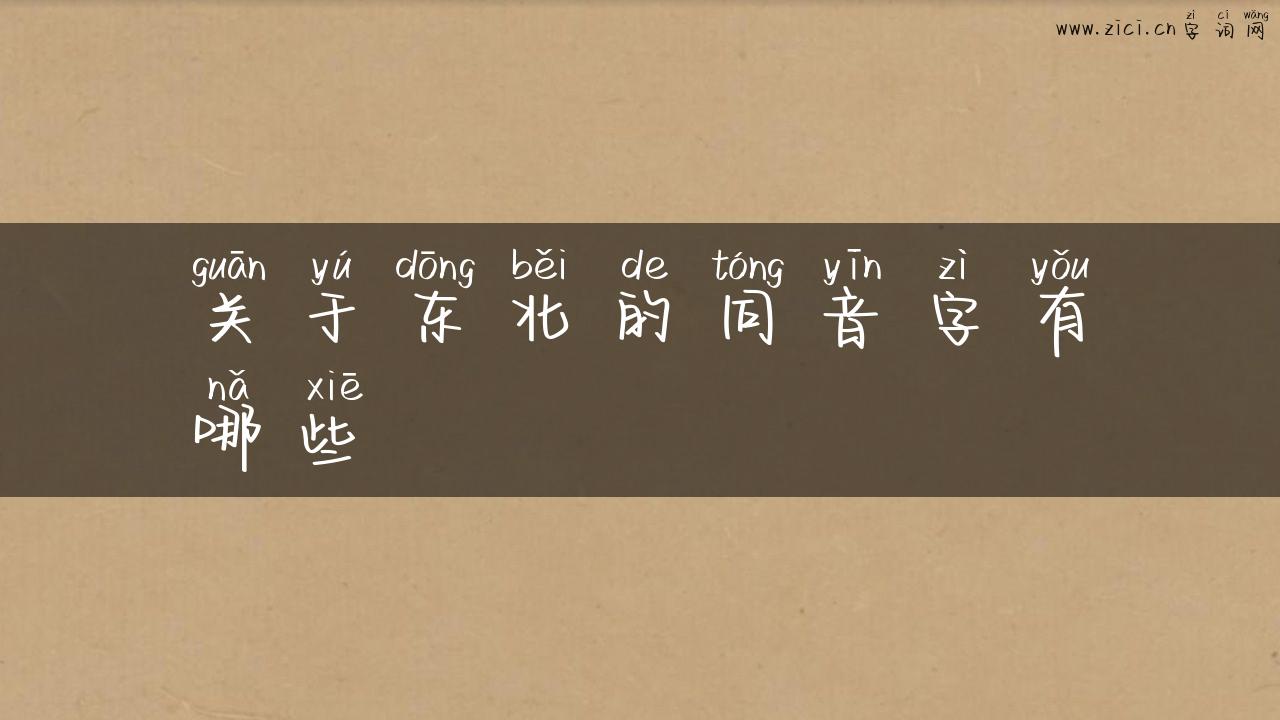 zì cí wǎng
www.zici.cn 字 词 网
guān yú dōng běi de tóng yīn zì yǒu
关 于 东 北 的 同 音 字 有
nǎ xiē
哪 些